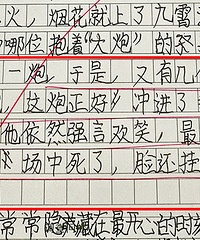 火，烟花就上了九霄
哪位抱着“大炮”的祭
一炮，于是，又有几
，技炮正好”冲进了
他依然强言欢笑，最
”场中死了，脸还挂
常常隐藏在最开心的时